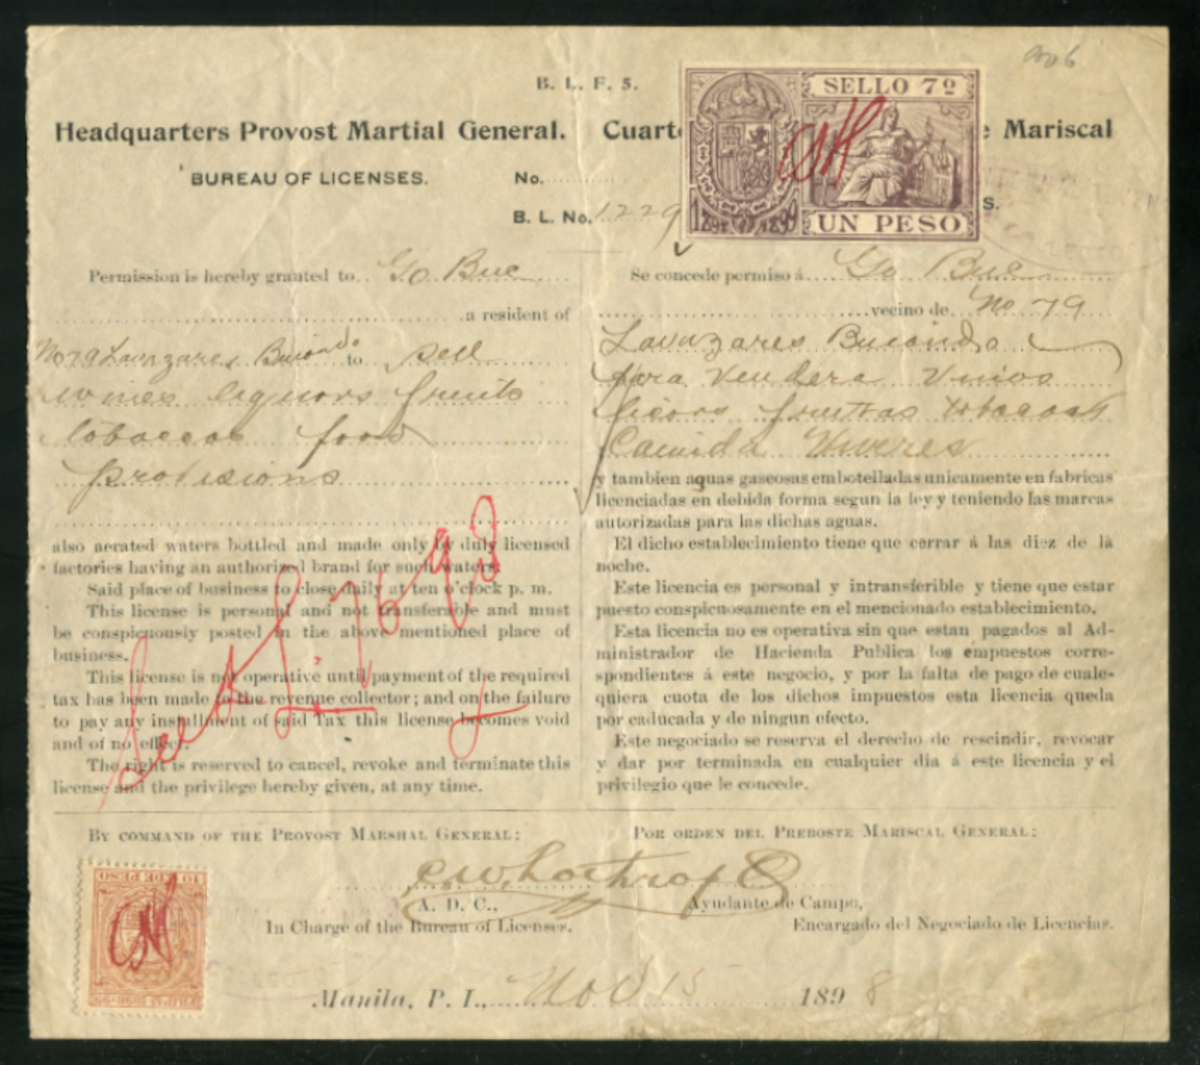 B. L. F. 5.
Headquarters Provost Martial General.
BUREAU OF LICENSES.
No.
B. L. No. 1229
Permission is hereby granted to Go Bue
a resident of
No 79 Lavazares Binondo to sell
wines liquors fruits
tobaccos food
provisions
also aerated waters bottled and made only by duly licensed
factories having an authorized brand for such waters.
Said place of business to close daily at ten o'clock p. m.
This license is personal and not transferable and must
be conspicuously posted in the above mentioned place of
business.
This license is not operative until payment of the required
tax has been made to the revenue collector; and on the failure
to pay any installment of said Tax this license becomes void
and of no effect.
The right is reserved to cancel, revoke and terminate this
license and the privilege hereby given, at any time.
See
By command of the Provost Marshal General:
A. D. C.,
In Charge of the Bureau of Licenses.
Cuart
e Mariscal
s.
SELLO 7º
1898 Y 1899
UN PESO
Se concede permiso á Go Bue
vecino de No 79
Lavazares Binondo
para vendera vinos
licors fruttas tobacos
Comida Viveres
y tambien aguas gaseosas embotelladas unicamente en fabricas
licenciadas en debida forma segun la ley y teniendo las marcas
autorizadas para las dichas aguas.
El dicho establecimiento tiene que cerrar á las diez de la
noche.
Este licencia es personal y intransferible y tiene que estar
puesto conspicuosamente en el mencionado establecimiento.
Esta licencia no es operativa sin que estan pagados al Ad-
ministrador de Hacienda Publica los empuestos corre-
spondientes á este negocio, y por la falta de pago de cuale-
quiera cuota de los dichos impuestos esta licencia queda
por caducada y de ningun efecto.
Este negociado se reserva el derecho de rescindir, revocar
y dar por terminada en cualquier dia á este licencia y el
privilegio que le concede.
Por orden del Preboste Mariscal General:
C W Lothrop
Ayudante de Campo,
Encargado del Negociado de Licencias.
Manila, P. I., Nov 15 1898